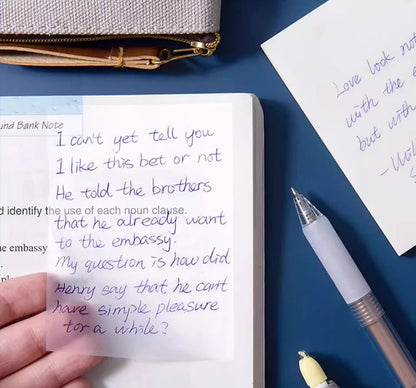 und Bank Note
I can't yet tell you
I like this bet or not
He told the brothers
d identify the use of each noun clause.
that he already want
he embassy
to the embassy.
My question is how did
Henry say that he can't
have simple pleasure
for a while?
Love look not
with the
but with